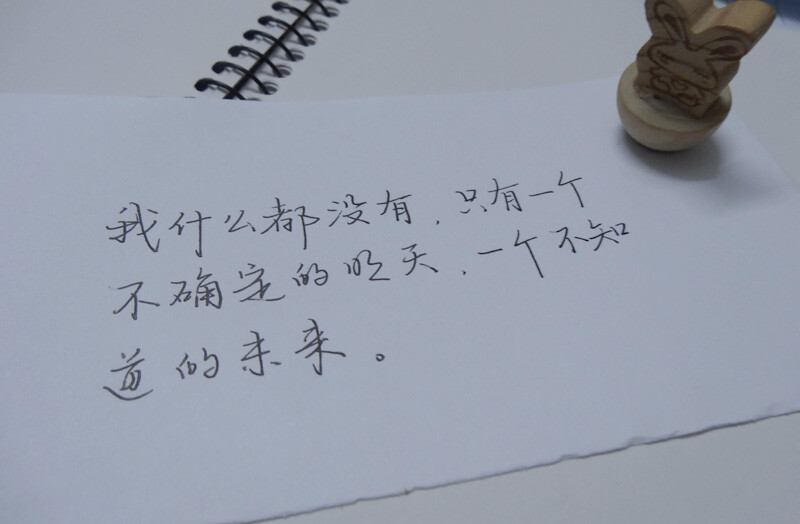 我什么都没有，只有一个
不确定的明天，一个不知
道的未来。